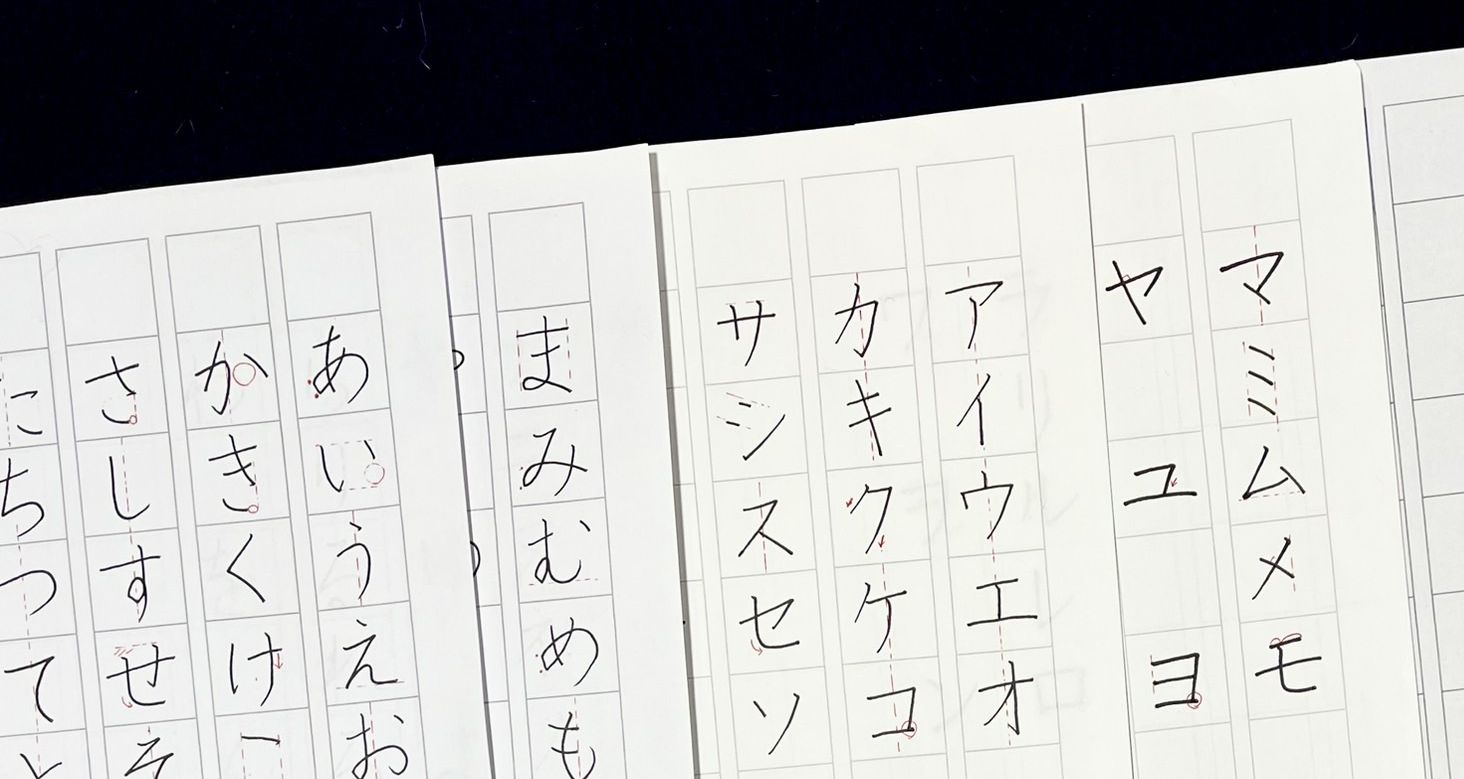 マミムメモ
ヤユヨ
アイウエオ
カキクケコ
サシスセソ
まみむめも
あいうえお
かきくけ
さしすせそ
たちつて